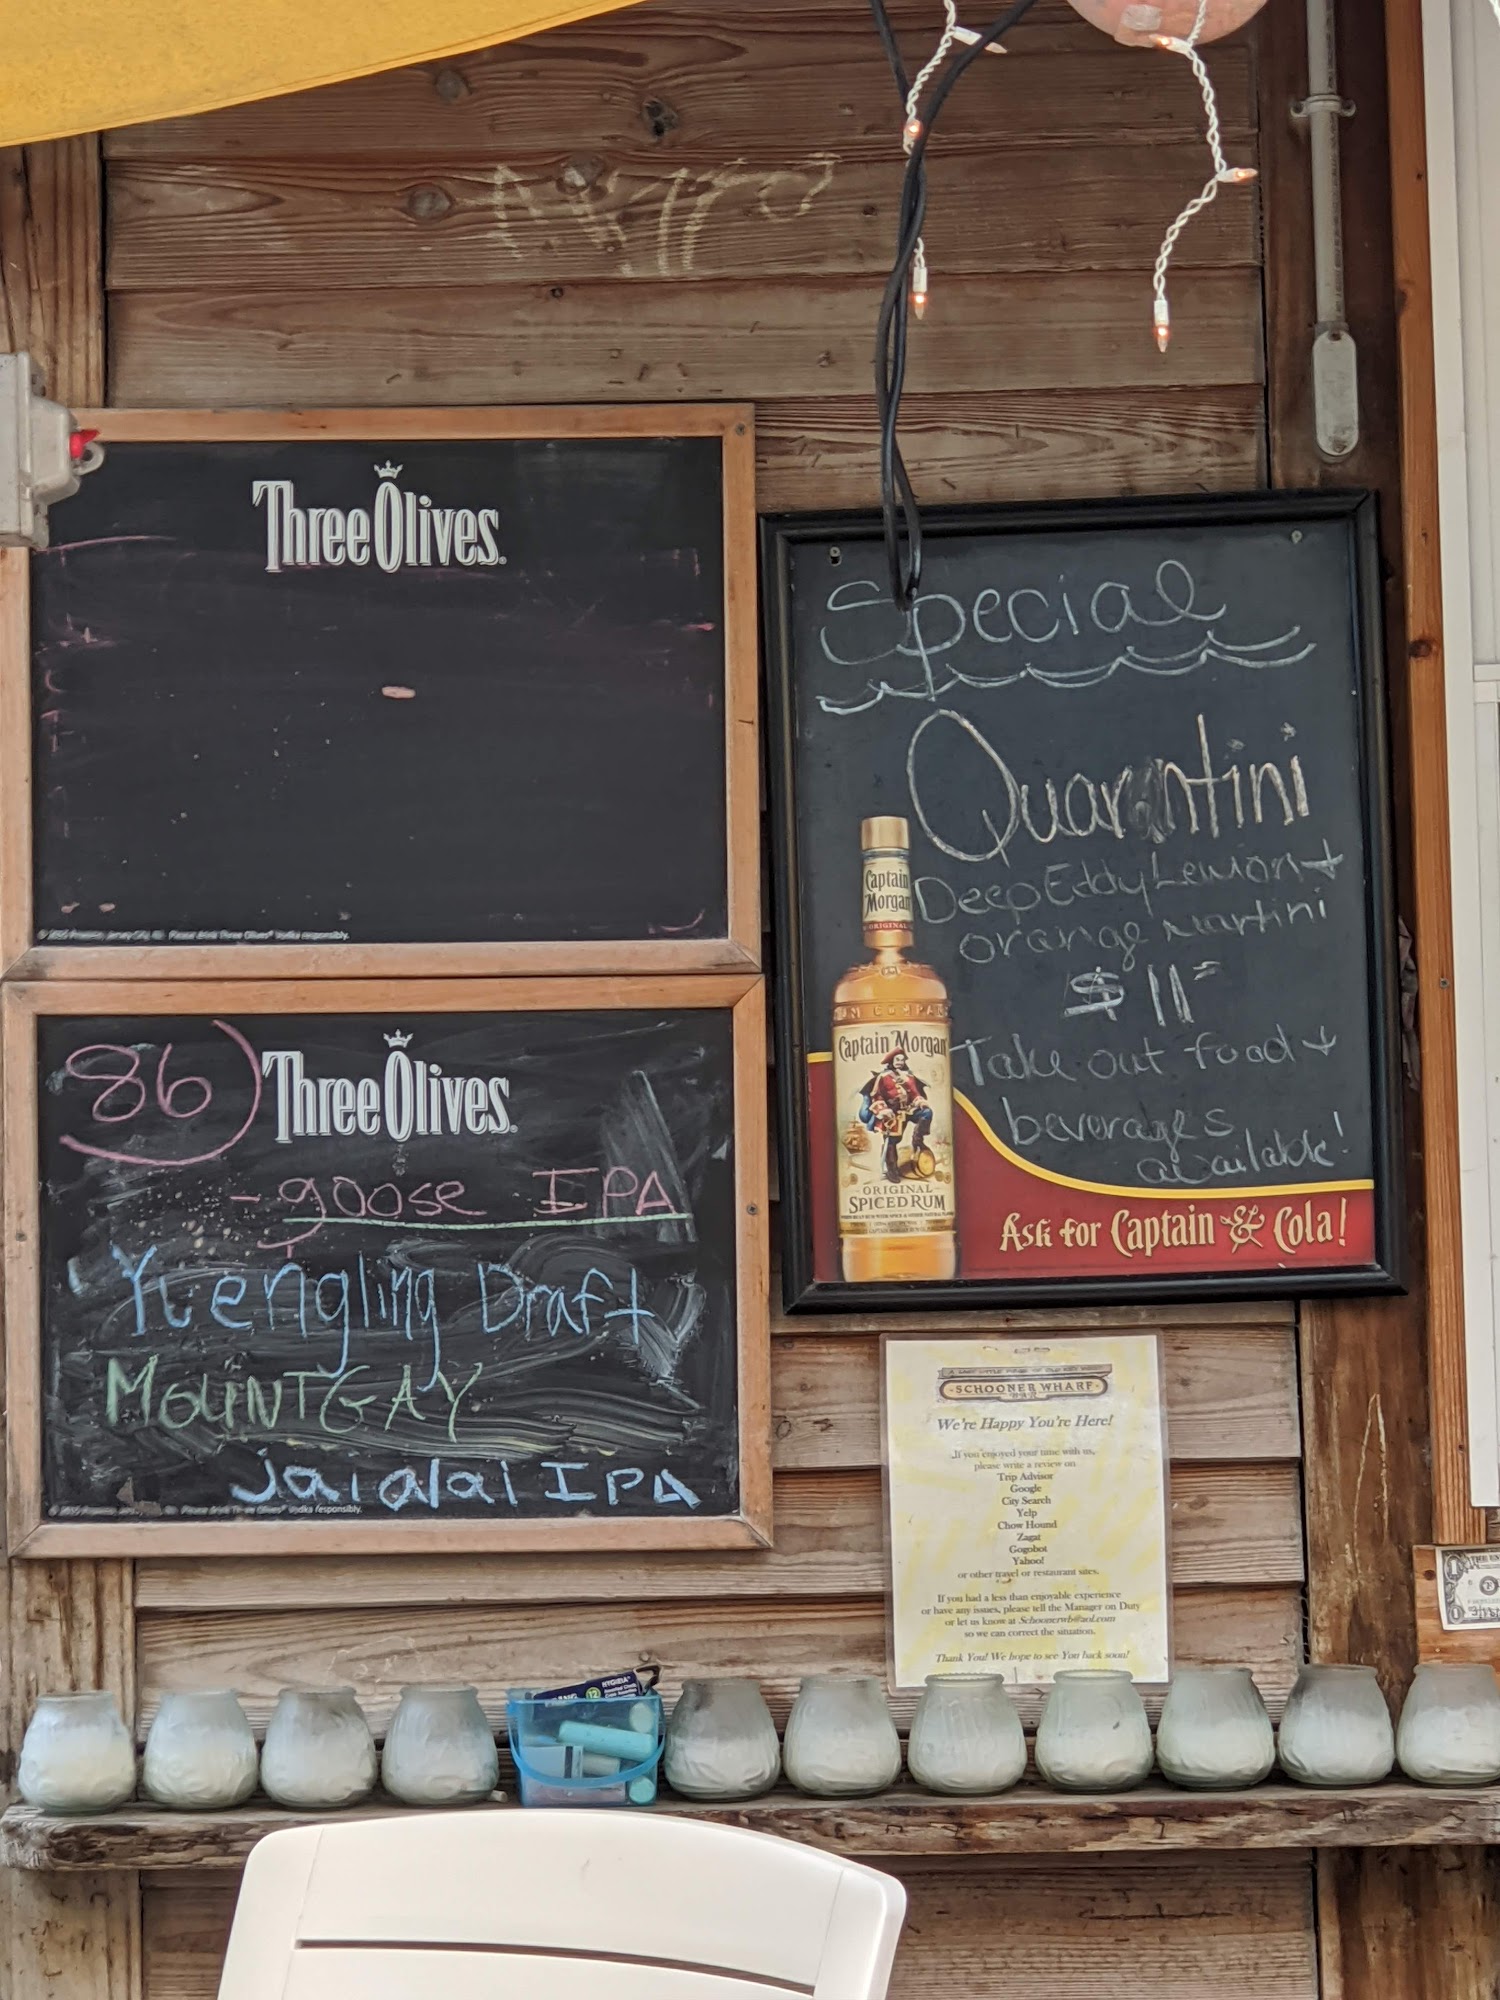 Three Olives
Please drink Three Olives® Vodka responsibly.
86
Three Olives
- goose IPA
Yuengling Draft
MOUNTGAY
jaialai IPA
Please drink Three Olives® Vodka responsibly.
Special
Quarantini
Deep Eddy Lemon +
orange martini
$11
Take out food +
beverages
available!
Captain
Morgan
ORIGINAL
RUM COMPANY
Captain Morgan
ORIGINAL
SPICED RUM
Ask for Captain & Cola!
SCHOONER WHARF
BAR
We're Happy You're Here!
If you enjoyed your time with us,
please write a review on
Trip Advisor
Google
City Search
Yelp
Chow Hound
Zagat
Gogobot
Yahoo!
or other travel or restaurant sites.
If you had a less than enjoyable experience
or have any issues, please tell the Manager on Duty
or let us know at Schoonerwb@aol.com
so we can correct the situation.
Thank You! We hope to see You back soon!
HYGIEIA®
12